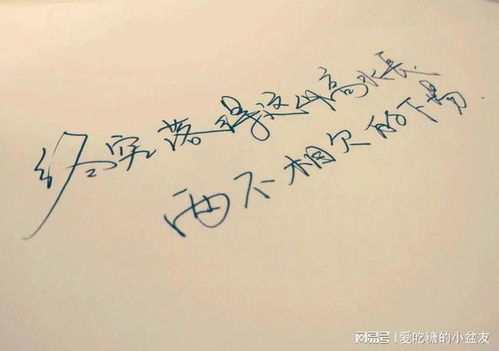 终实落得这山高水長
两不相欠的下场.
网易号 | 爱吃糖的小盆友